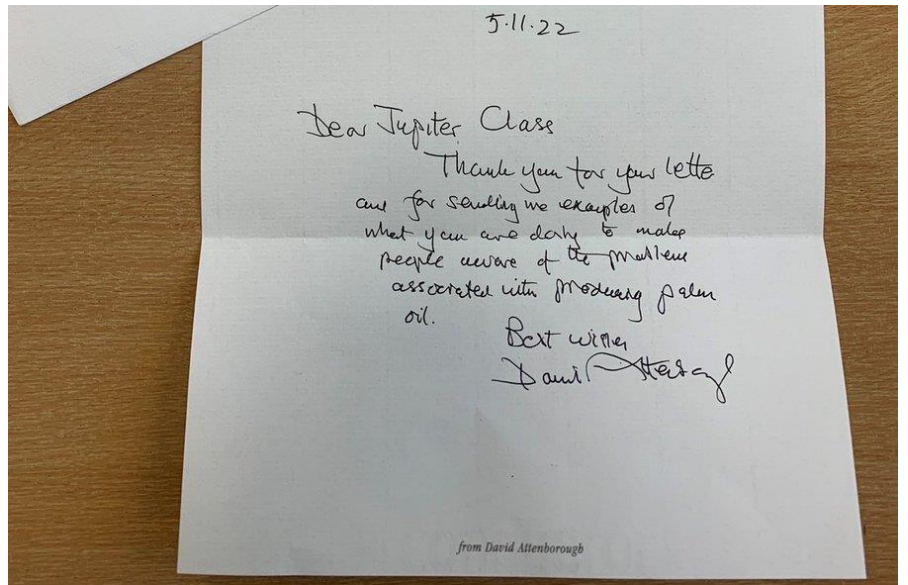 5.11.22
Dear Jupiter Class
Thank you for your lette
and for sending me examples of
what you are doing to make
people aware of the problems
associated with producing palm
oil.
Best wishes
David Attenborough
from David Attenborough